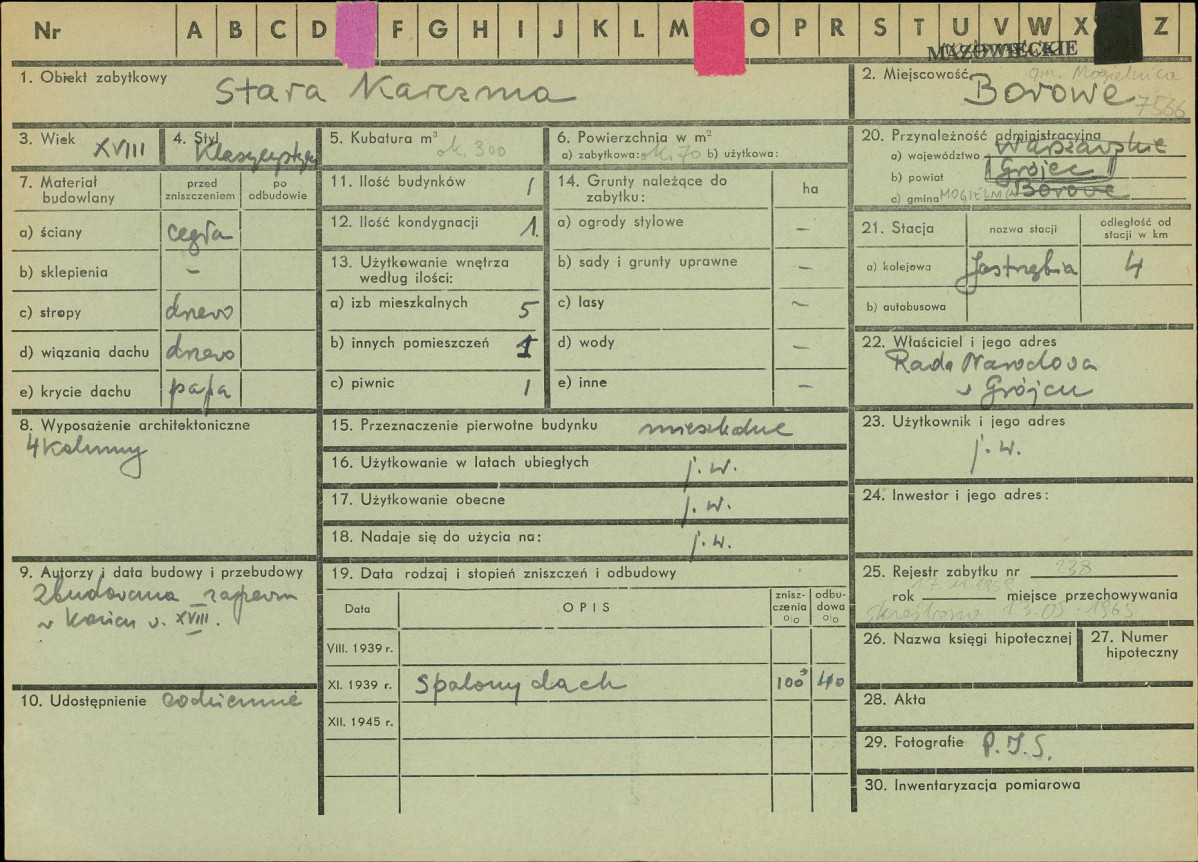 Nr A B C D F G H I J K L M O P R S T U V W X Z
MAZOWIECKIE
1. Obiekt zabytkowy Stara Karczma
2. Miejscowość gm. Mogielnica
Borowe 7566
3. Wiek XVIII
4. Styl Klasycystyczny
5. Kubatura m³ ok. 300
6. Powierzchnia w m²
a) zabytkowa: ok. 70 b) użytkowa:
7. Materiał budowlany
przed zniszczeniem
po odbudowie
a) ściany cegła
b) sklepienia –
c) stropy drewo
d) wiązania dachu drewo
e) krycie dachu papa
8. Wyposażenie architektoniczne
4 kolumny
9. Autorzy i data budowy i przebudowy
Zbudowana zapewne
w końcu w. XVIII.
10. Udostępnienie codziennie
11. Ilość budynków 1
12. Ilość kondygnacji 1.
13. Użytkowanie wnętrza
według ilości:
a) izb mieszkalnych 5
b) innych pomieszczeń 1
c) piwnic 1
14. Grunty należące do
zabytku:
ha
a) ogrody stylowe –
b) sady i grunty uprawne –
c) lasy –
d) wody –
e) inne –
15. Przeznaczenie pierwotne budynku mieszkalne
16. Użytkowanie w latach ubiegłych j. w.
17. Użytkowanie obecne j. w.
18. Nadaje się do użycia na: j. w.
19. Data rodzaj i stopień zniszczeń i odbudowy
Data OPIS znisz-czenia o|o odbu-dowa o|o
VIII. 1939 r.
XI. 1939 r. Spalony dach 100 40
XII. 1945 r.
20. Przynależność administracyjna
a) województwo Warszawskie
b) powiat Grójec
c) gmina Borowe
21. Stacja nazwa stacji odległość od stacji w km
a) kolejowa Jastrzębia 4
b) autobusowa
22. Właściciel i jego adres
Rada Narodowa
w Grójcu
23. Użytkownik i jego adres
j. w.
24. Inwestor i jego adres:
25. Rejestr zabytku nr 238
rok miejsce przechowywania
Skreślono 13-05-1965
26. Nazwa księgi hipotecznej
27. Numer
hipoteczny
28. Akta
29. Fotografie P.I.S.
30. Inwentaryzacja pomiarowa